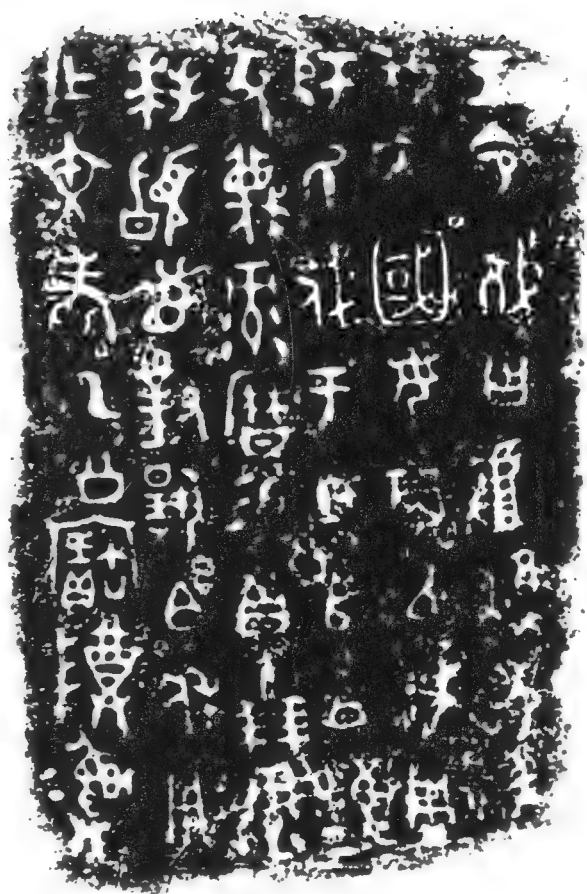 王令𢦚曰𠭯淮夷敢
伐內國女其以成周
師氏戍于古𠂤白雍
父蔑彔曆易貝十朋彔
拜𩒨首對揚白休用
乍文考乙公寶尊彝